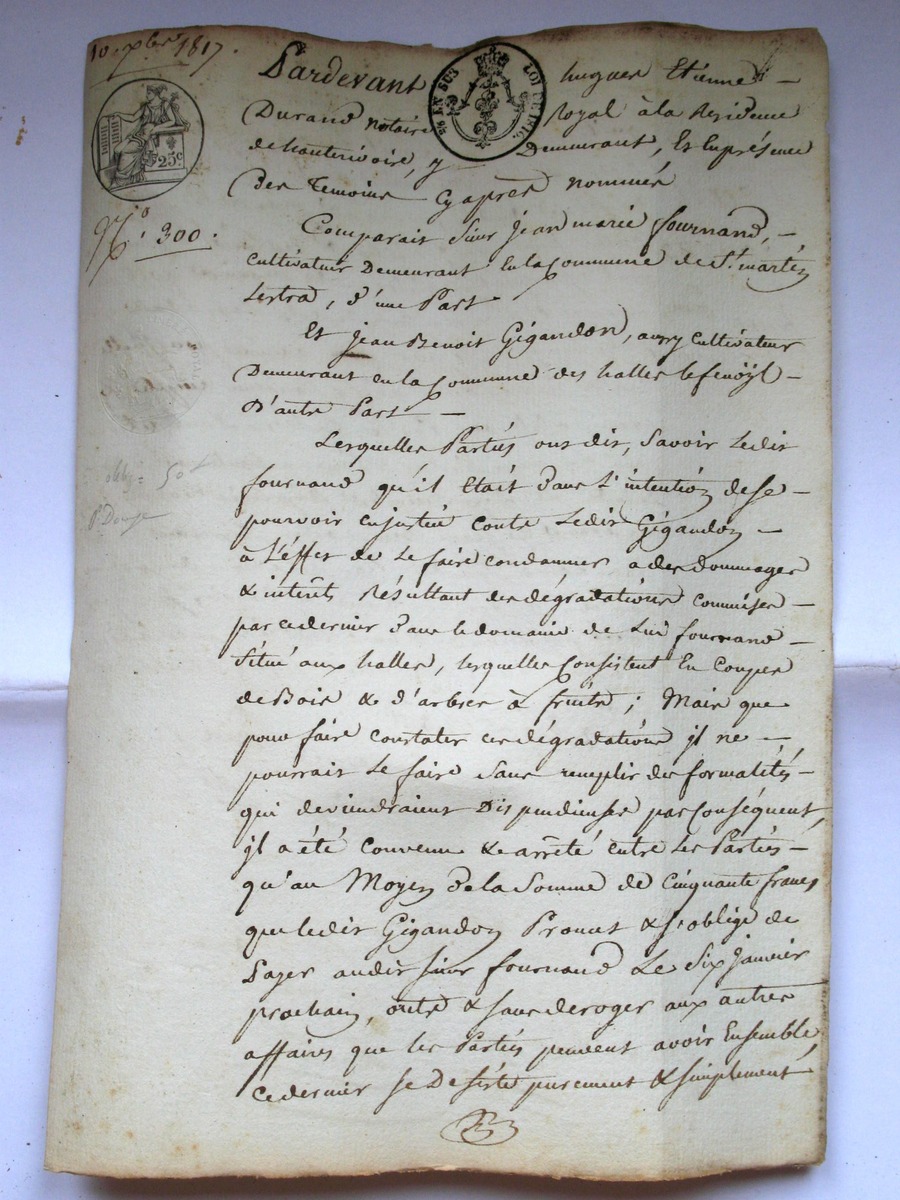 10 xbre 1817.
25c
EN SUS LOI DE 1816.
No. 300.
oblig= 50
Pardevant hugues Etienne –
Durand notaire Royal à la Residence
de hauterivoire, y Demeurant, Et En présence
Des Temoins Cy après nommés
Comparait Sieur Jean marie fournand, –
Cultivateur Demeurant En la Commune de St. martin
Lestra, d'une Part
Et Jean Benoit Gigandon, aussy Cultivateur
Demeurant en la Commune des halles lefenöyl –
D'autre Part –
Lesquelles Parties ont dit, Savoir Ledit
fournand qu'il Etait dans L'intention de se –
pourvoir en justice contre Ledit Gigandon –
à L'effet de Le faire condamner a des dommages
& intérêts Résultant des dégradations commises –
par ce dernier dans le domaine de Lui fournand –
Situé aux halles, lesquelles Consistent En Coupes
de Bois & d'arbres à fruits ; Mais que
pour faire constater ces dégradations il ne –
pourrait Le faire Sans remplir des formalités –
qui deviendraient Dispendieuses par Conséquent,
il a été Convenu & arrêté entre Les Parties –
qu'au Moyen de la Somme de Cinquante francs
que ledit Gigandon Promet & s'oblige de
Payer audit Sieur fournand Le Six Janvier
prochain, outre & sans deroger aux autres
affaires que les Parties peuvent avoir Ensemble,
ce dernier se Desiste purement & simplement